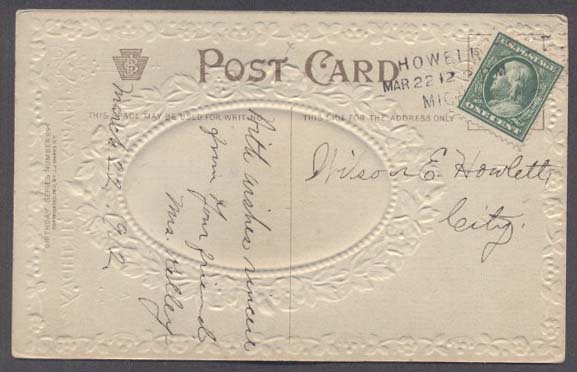 POST CARD
THIS SPACE MAY BE USED FOR WRITING
THIS SIDE FOR THE ADDRESS ONLY
HOWELL
MAR 22 12
MICH
U.S. POSTAGE
ONE CENT
March 22, 1912.
With wishes sincere
from your friend,
Mrs. Kelley.
Wilson E. Howlett,
City.
BIRTHDAY SERIES NUMBER